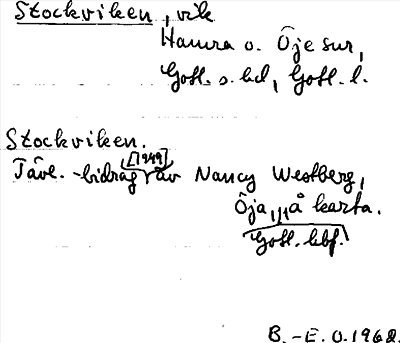 Stockviken, vik
Hamra o. Öje snr,
Gotl. s. hd, Gotl. l.
Stockviken.
[1949]
Tävl.-bidrag av Nancy Westberg,
Öja, på karta.
Gotl. hbf.
B.-E. O. 1968.